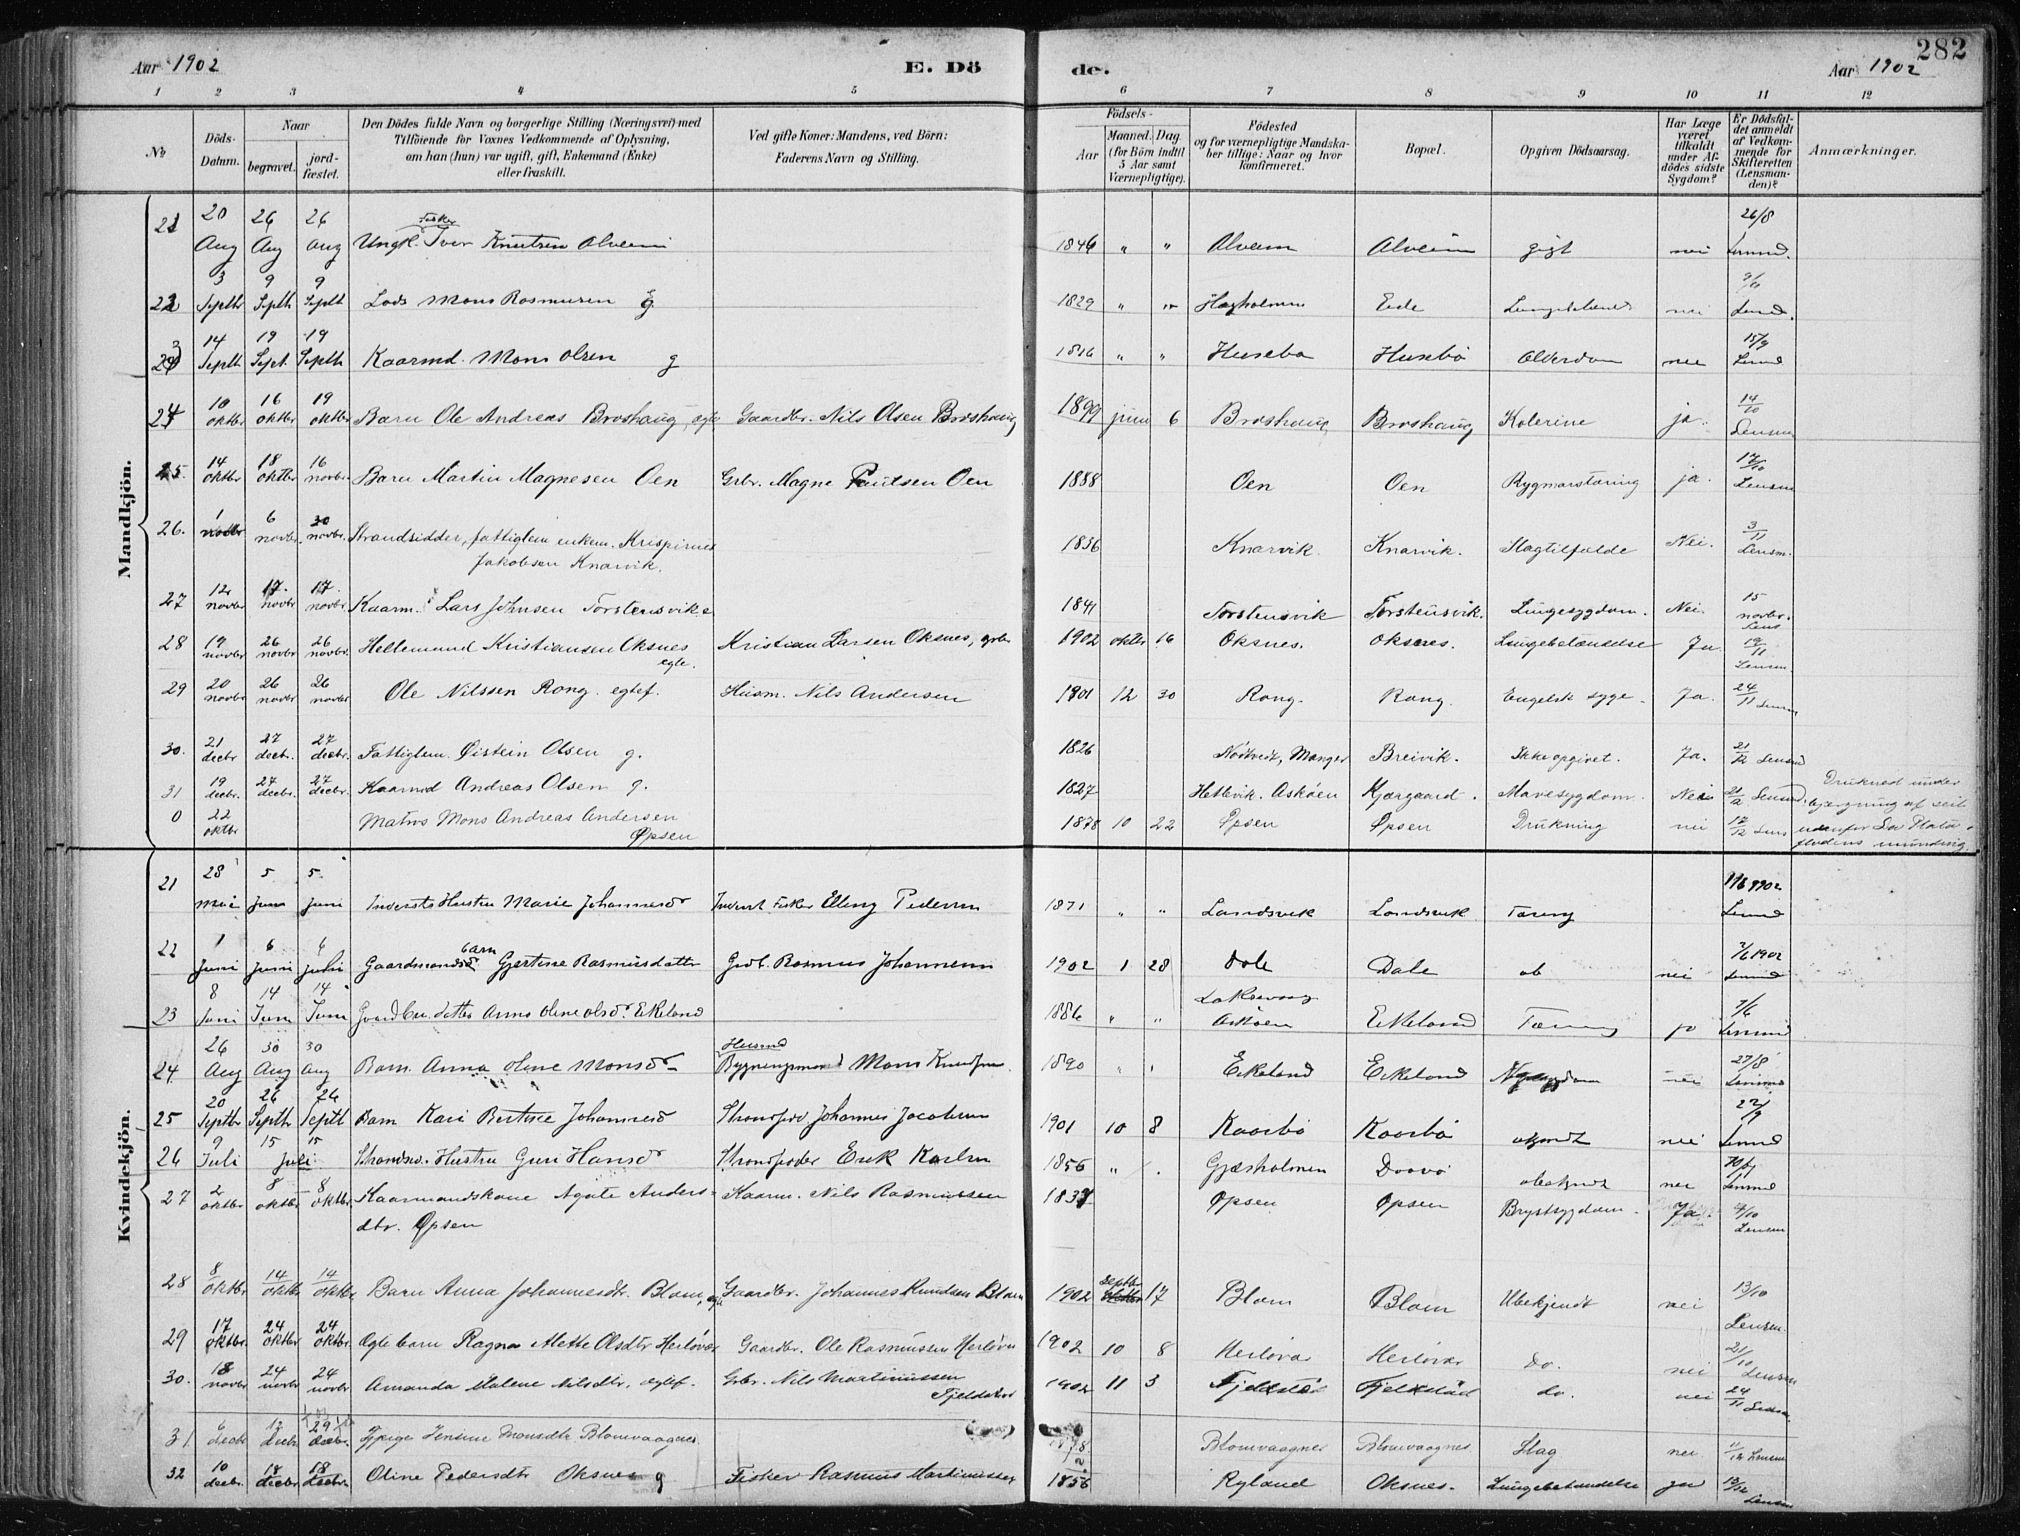 Aar 1902
E. Dö
de.
282
Aar 1902
1 2 3 4 5 6 7 8 9 10 11 12
No
Döds-Datum.
Naar
begravet.
jord-fæstet.
Den Dödes fulde Navn og borgerlige Stilling (Næringsvei) med
Tilföiende for Voxnes Vedkommende af Oplysning,
om han (hun) var ugift, gift, Enkemand (Enke)
eller fraskilt.
Ved gifte Koner: Mandens, ved Börn:
Faderens Navn og Stilling.
Födsels-
Aar
Maaned. Dag.
(for Börn indtil
5 Aar samt
Værnepligtige).
Födested
og for værnepligtige Mandska-
ber tillige: Naar og hvor
konfirmeret.
Bopæl.
Opgiven Dödsaarsag.
Har Læge
været
tilkaldt
under Af-
dödes sidste
Sygdom?
Er Dödsfal-
det anmeldt
af Vedkom-
mende for
Skifteretten
(Lensman-
den)?
Anmærkninger.
Mandkjön.
20 Aug 26 Aug 26 aug Ungk. Fisker Iver Knutsen Alveim 1846 " " Alveim Alveim gigt nei 26/8
3 Septbr 9 Septb 9 Septb Lods Mons Rasmusen g 1829 " " Eide nei
14 Septb 19 Sept. 19 Septb Kaarmd. Mons Olsen g 1816 " " Husebø Husebö Alderdom nei 15/9
24 10 oktbr 16 oktbr 19 oktbr Barn Ole Andreas Broshaug, egte Gaardbr. Nils Olsen Broshaug 1899 juni 6 Broshaug Broshaug Kolerine ja. 14/10 Lensm
25. 14 oktbr 18 oktbr 16 novbr. Barn Martin Magnesen Oen Grbr. Magne Oen 1888 Oen Oen Rygmarstæring ja. 17/10 Lensm
26. 1 novbr 6 novbr. 30 novbr. Strandsidder, fattiglem enkem. Krispinus
Jakobsen Knarvik. 1856 Knarvik. Knarvik. Slagtilfælde Nei. 3/11 Lensm.
27 12 novbr 17. novbr 17. novbr. Kaarm. Lars Johnsen Torstensvik 1841 Torstensvik Torstensvik. Lungesygdom. Nei. 15 novbr. Lens
28 19 novbr 26 novbr 26 novbr. Hellemund Kristiansen Oksnes egte. Kristian Larsen Oksnes, grbr 1902 oktbr 16 Oksnes. Oksnes. Lungebetændelse Ja. 19/11 Lensm.
29 20 novbr 26 novbr 26 novbr Ole Nilssen Rong. egtef. Husm. Nils Andersen 1901 12 30 Rong. Rong. Engelsk syge. Ja. 24/11 Lensm
30. 21 decbr 27 decbr. 27 decbr. Fattiglem. Øistein Olsen g. 1826 Nödtvedt, Manger Breivik. Ikke opgivet. Ja. 21/12 Lensmd
31 19 decbr. 27 decbr. 27 decbr. Kaarmd Andreas Olsen g. 1827 Hetlevik. Askøen Kjærgaard. Mavesygdom. Nei 21/12 Lensmd.
0 22 oktbr Matros Mons Andreas Andersen
Øpsen 1878 10 22 Øpsen Øpsen Drukning nei 17/12 Lens
Druknet under
bjærgning af seil
udenfor La Plata
flodens munding.
Kvindekjön.
21 28 Mai 5. Juni 5. Juni Inderste Hustru Marie Johannesdr Inderst Fisker Elling Pedersen 1871 " " Landsvik Landsvik Tæring
22 1 Juni 6 Juni 6 Juni Gaardmands barn Gjertine Rasmusdatter Grdb. Rasmus Johannesen 1902 1 28 Dale Dale nei 2/6 1902
23 8 Juni 14 Juni 14 Juni Gaardbr. datter Anna Oline Olsdr. Ekeland 1886 " " Laksevaag Askøen Ekeland Tæring ja 7/6
24. 26 Aug 30 Aug 30 aug Barn Anna Oline Monsdr Husmd Bygningsmand Mons Knudsen. 1890 " Ekeland Ekeland nei 27/8
25 20 Septbr 26 Septbr 26 Septb Barn Kari Bertine Johannesdr Johannes Jacobsen 1901 10 8 Kaarbø Kaarbö nei
26 9 Juli 15 15 Juli Hustru Guri Hansdr Strandsider Erik Karlsen 1856 " Gjæsholmen nei
27 2 oktbr 8 oktbr 8 oktbr. Kaarmandskone Agate Anders-
dbr. Øpsen Kaarm. Nils Rasmussen Øpsen Øpsen Brystsygdom. Ja. 4/10 Lensm
28 8 oktbr 14 oktbr 14 oktbr Barn Anna Johannesdtr Blom, egte Gaardbr. Johannes Knudsen Blom 1902 septbr 17 Blom Blom Ubekjendt nei 13/10 Lensm.
29 17 oktbr. 24 oktbr 24 oktbr. Egte barn Ragna Alette Olsdtr Herløvær Gaardbr. Ole Rasmussen Herløvær 1902 10 8 Herløvær Herløvær Do. nei 21/10 Lensm
30. 18 novbr 24 novbr 24 novbr Amanda Malene Nilsdtr. egtef. Grbr. Nils Martinussen
Fjeldstad 1902 11 3 Fjeldstad Fjeldstad do. nei 24/11 Lensm
31 6 decbr 12 decbr 29 decbr. Pige Jensine Monsdtr Blomvaagnes. Blomvaagnes Blomvaagnes Slag nei Lensm
32 10 decbr. 18 decbr 18 decbr Oline Pedersdtr Oksnes g Fisker Rasmus Martinussen 1856 Ryland Oksnes. Lungebetændelse ja 12/12 Lensm